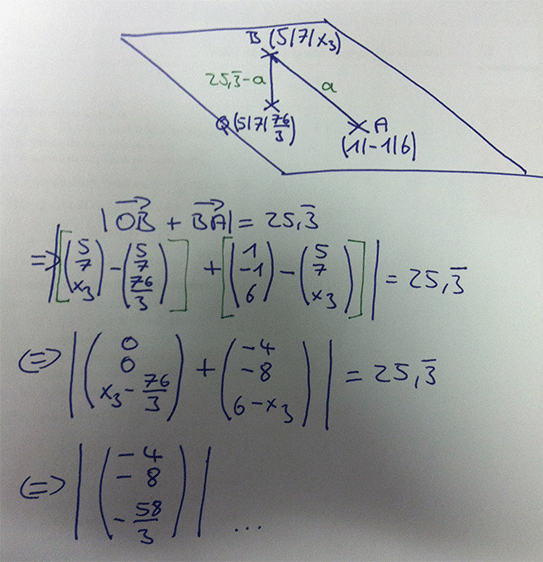 B (5|7|x₃)
25,3̅-a
a
Q(5|7|76/3)
A
(1|-1|6)
|OB⃗ + BA⃗| = 25,3̅
=> |[(5 7 x₃) - (5 7 76/3)] + [(1 -1 6) - (5 7 x₃)]| = 25,3̅
<=> |(0 0 x₃ - 76/3) + (-4 -8 6-x₃)| = 25,3̅
<=> |(-4 -8 -58/3)| ...